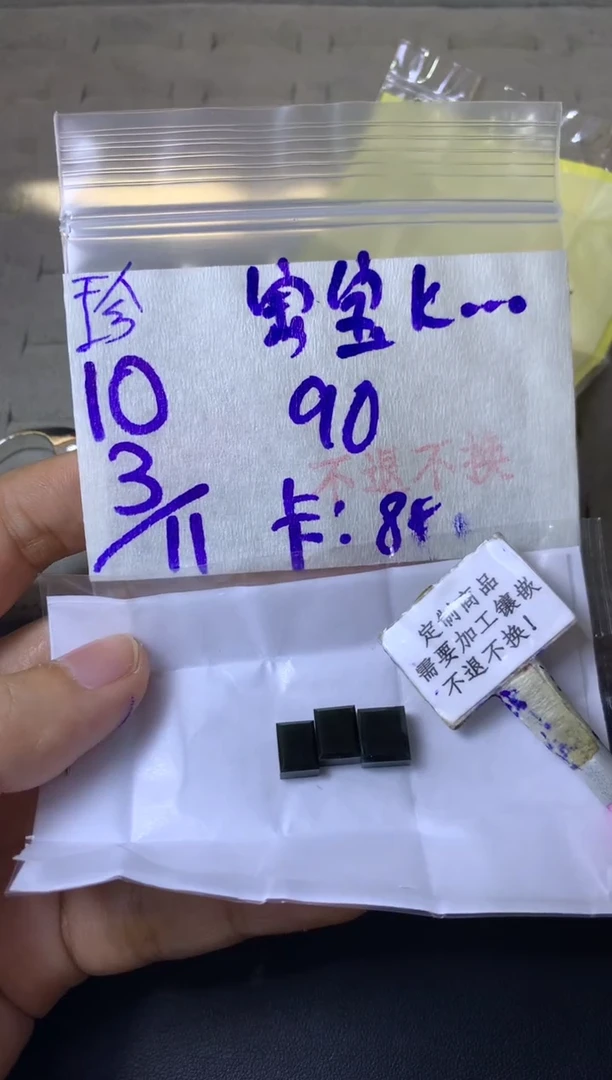 珍
宝宝k...
10
90
3/11
不退不换
卡：84
定制商品
需要加工镶嵌
不退不换！